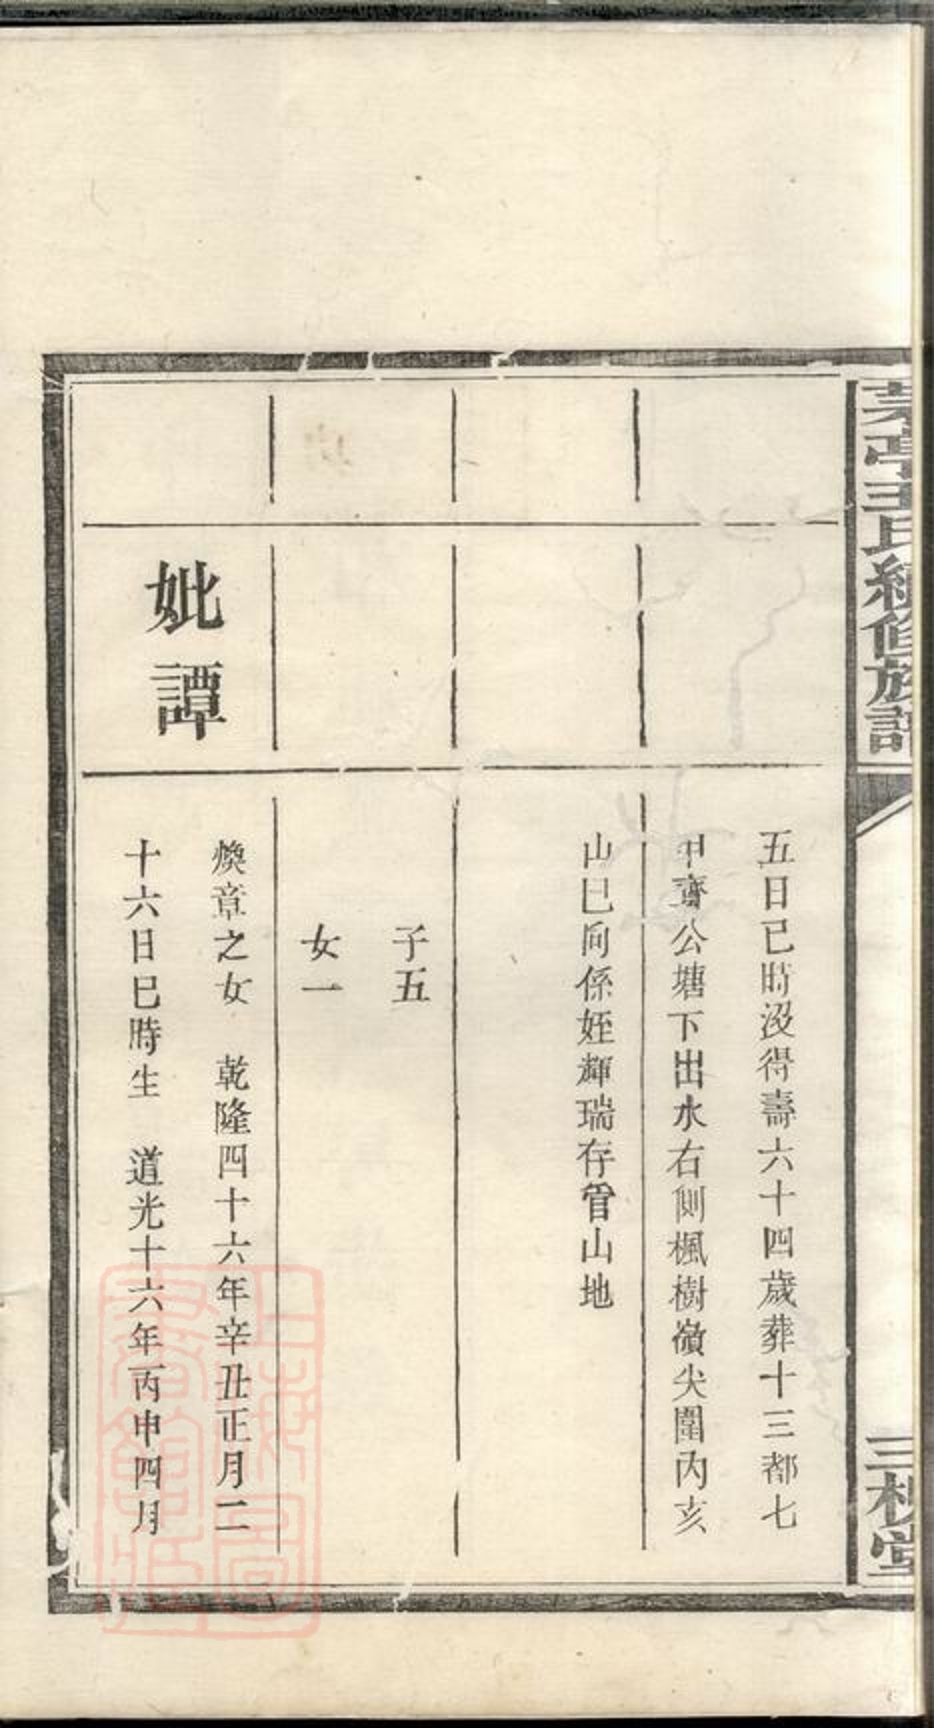 亭王氏續修族譜
三槐堂
五日巳時沒得壽六十四歲葬十三都七
甲齊公塘下出水右側楓樹嶺尖圍內亥
山巳向係姪輝瑞存管山地
子五
女一
妣譚
煥章之女 乾隆四十六年辛丑正月二
十六日巳時生 道光十六年丙申四月
上海圖書館藏